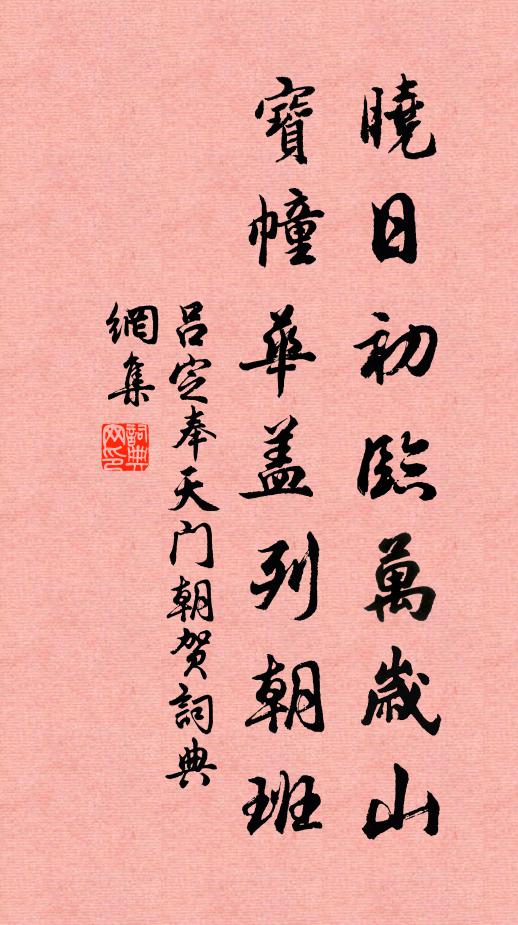 曉日初臨萬歲山
寶幢華蓋列朝班
呂定奉天门朝贺詞典
網集
詞典網印